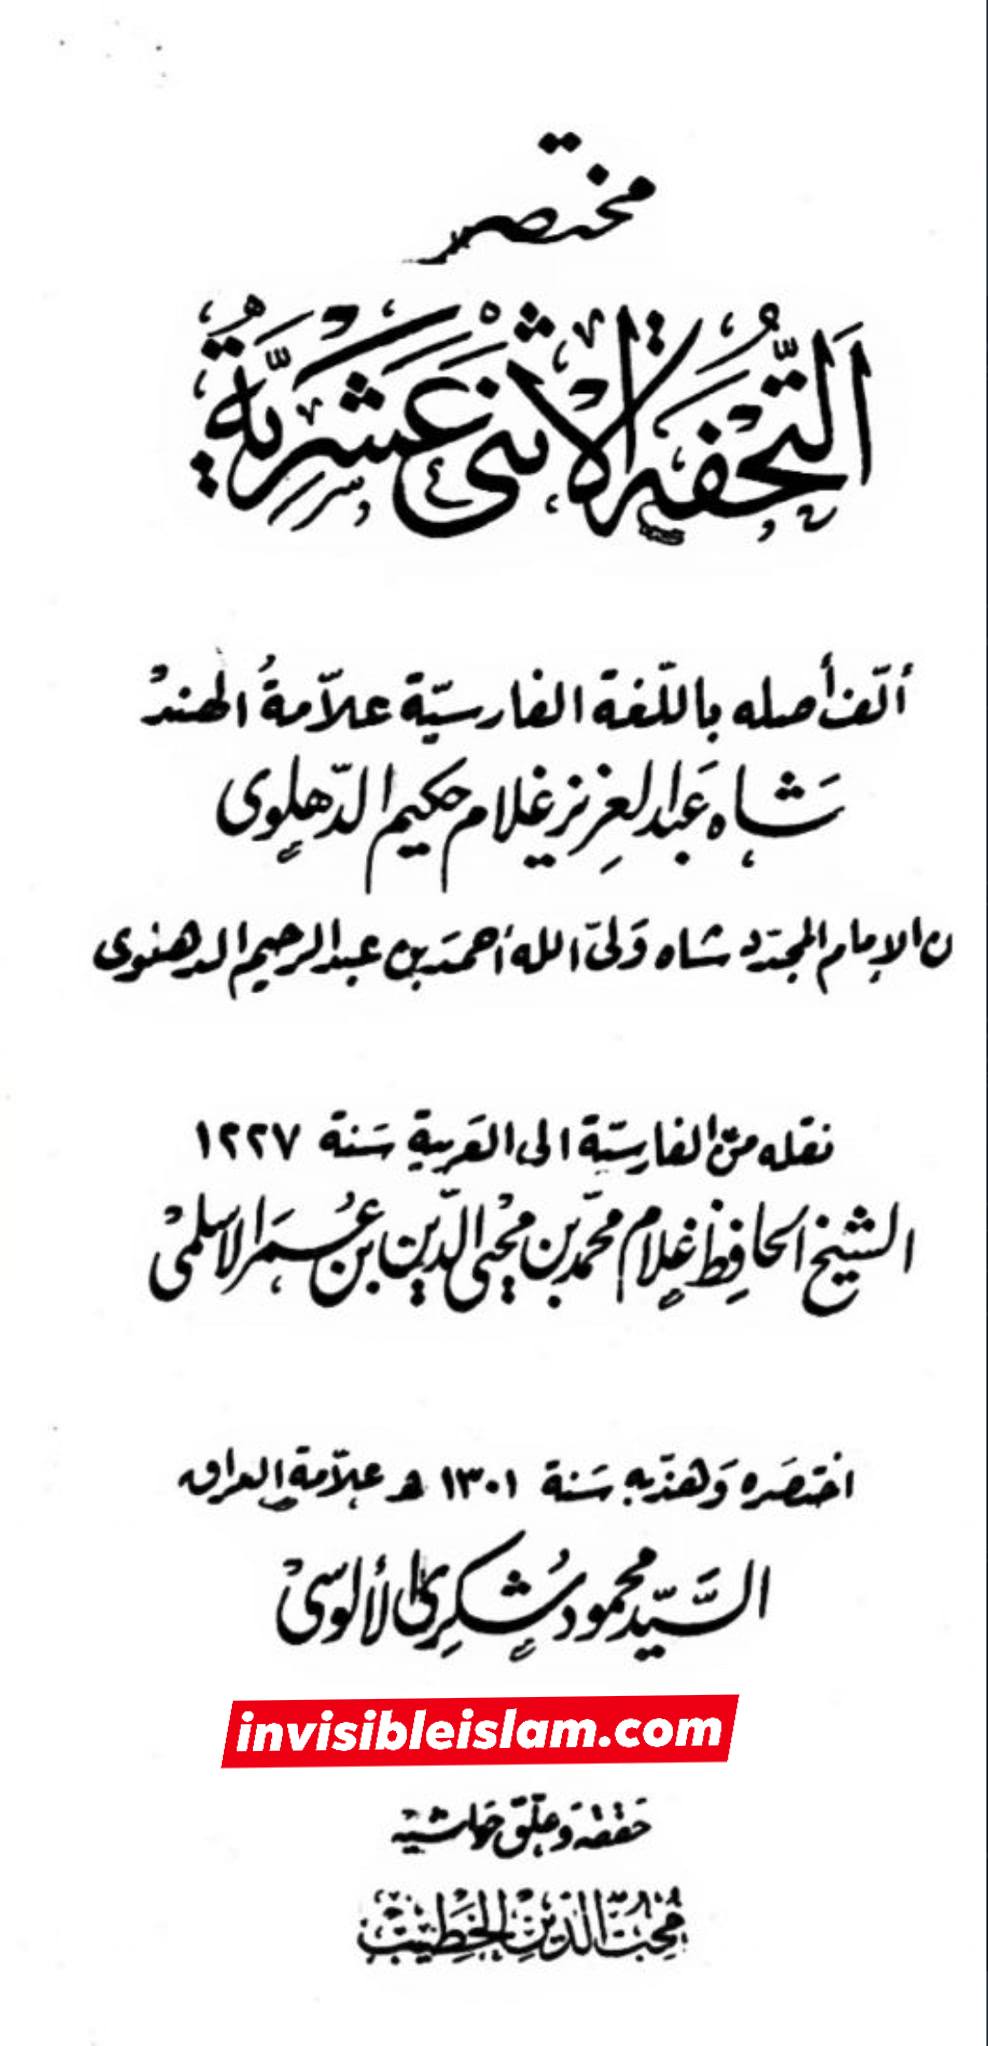 مختصر
اَلتُّحْفَةِ الِاثْنَىْ عَشَرِيَّةِ
ألّف أصله باللّغة الفارسيّة علاّمةُ الهند
شَاه عَبد العزيز غلام حكيم الدّهلوى
ن الإمام المجدّد شاه وَلىّ الله أحمَد بن عبد الرحيم الدهلوى
نقله من الفارسيّة الى العَربية سَنة ١٢٢٧
الشيخ الحافِظ غلام محمّد بن محيى الدّين ابن عُمَر الاسلمى
اختصَره وَهذّبه سَنة ١٣٠١ هـ علاّمة العراق
السَّيّد محمود شكرى الألوسى
invisibleislam.com
حَققه وَعلّق حَواشيه
مُحِبّ الدّين الخَطِيب